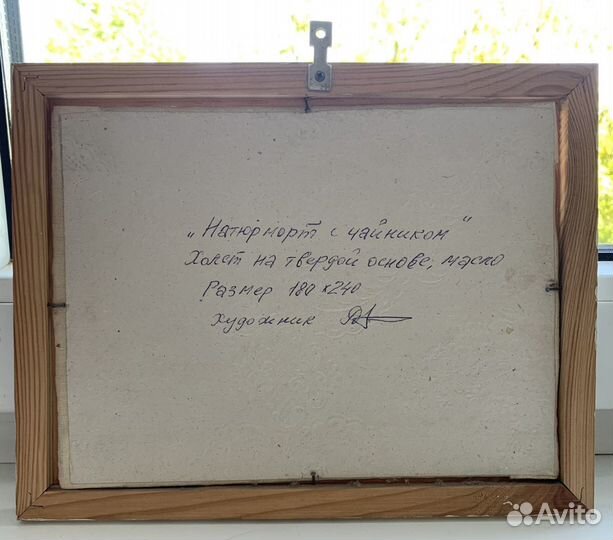 „Натюрморт с чайником“
Холст на твердой основе, масло
Размер 180 x 240
Художник
Avito